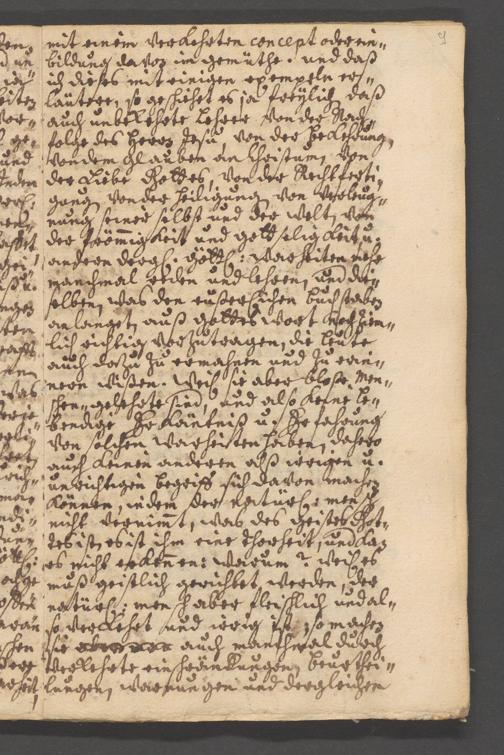 9
mit einem verkehrten concept oder ein-
bildung davon im gemüthe. und daß
ich dieses mit einigen exempeln er-
läutere, so geschiehet es ja freylich, daß
auch unbekehrte Lehrer von der Nach-
folge des Herrn Jesu, von der Bekehrung,
von dem glauben an Christum, von
der Liebe Gottes, von der Rechtferti-
gung, von der Heiligung, von verleug-
nung seiner selbst und der welt, von
der frömmigkeit und gottseligkeit u.
anderen dergl. göttl: warheiten mehr
manchmal reden und lehren, und die-
selben, was den eußerlichen buchstaben
anlanget, auß gottes wort noch ziem-
lich richtig vorzutragen, die leute
auch dazu zu ermahnen und zu erin-
nern wißen. Weil sie aber bloße men-
schen gelehrte sind, und also keine le-
bendige Erkäntniß u. Erfahrung
von solchen warheiten haben, dahero
auch keinen anderen alß irrigen u.
unrichtigen begriff sich davon machen
können, indem der natürl: mensch
nicht vernimt, was des geistes Got-
tes ist, es ist ihm eine thorheit, und kan
es nicht erkennen: warum? weil es
muß geistlich gerichtet werden, der
natürl: mensch aber fleischlich und al-
so verkehret und irrig ist, so machen
sie auch manchmal durch
verkehrte einschränckungen, beurthei-
lungen, warnungen und dergleichen